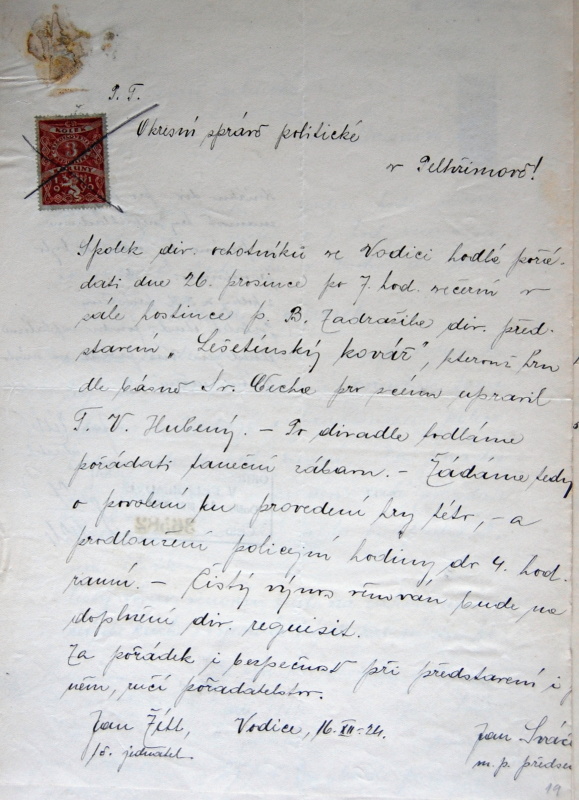 P. T.
KOLEK
3
KORUNY
Okresní správě politické
v Pelhřimově!
Spolek div. ochotníků ve Vodici hodlá pořá-
dati dne 26. prosince po 7. hod. večerní v
sále hostince p. B. Zadražila div. před-
stavení „Lešetínský kovář", kterouž hru
dle básně Sv. Čecha pro scénu upravil
F. V. Hubený. – Po divadle hodláme
pořádati taneční zábavu. – Žádáme tedy
o povolení ku provedení hry této, – a
prodloužení policejní hodiny do 4. hod.
ranní. – Čistý výnos věnován bude na
doplnění div. requisit.
Za pořádek i bezpečnost při představení i
něm, ručí pořadatelstvo.
Jan
Vodice, 16.XII-24.
Jan
jednatel
m. p. předse
19